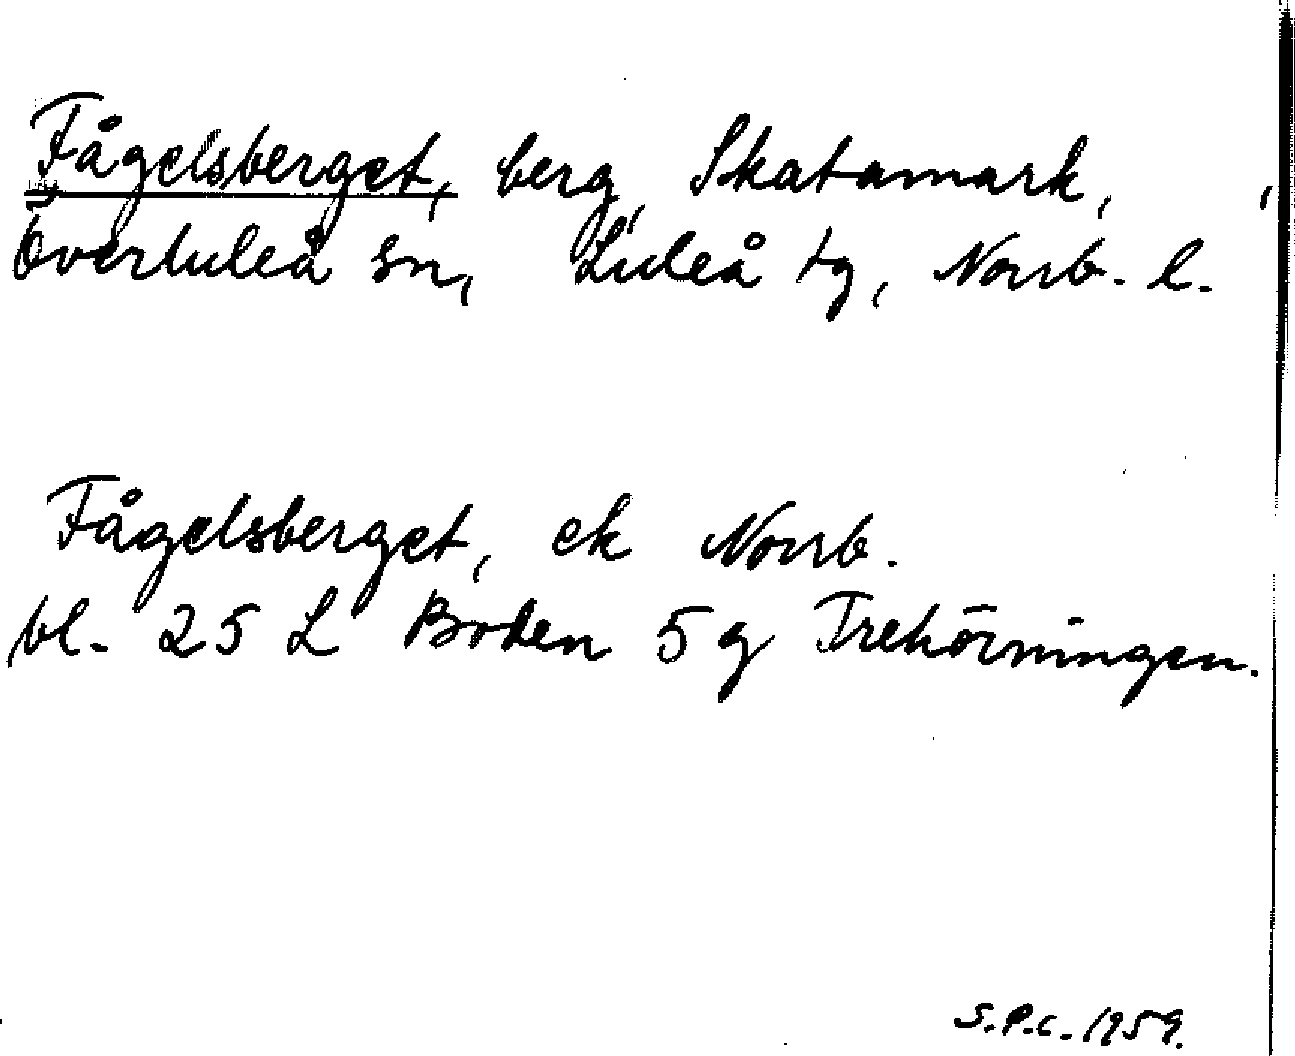 Fågelsberget, berg, Skatamark,
Överluleå sn, Luleå tg, Norrb. l.
Fågelsberget, ek Norrb.
bl. 25 L Boden 5 g Trehörningen.
S.P.C. 1959.